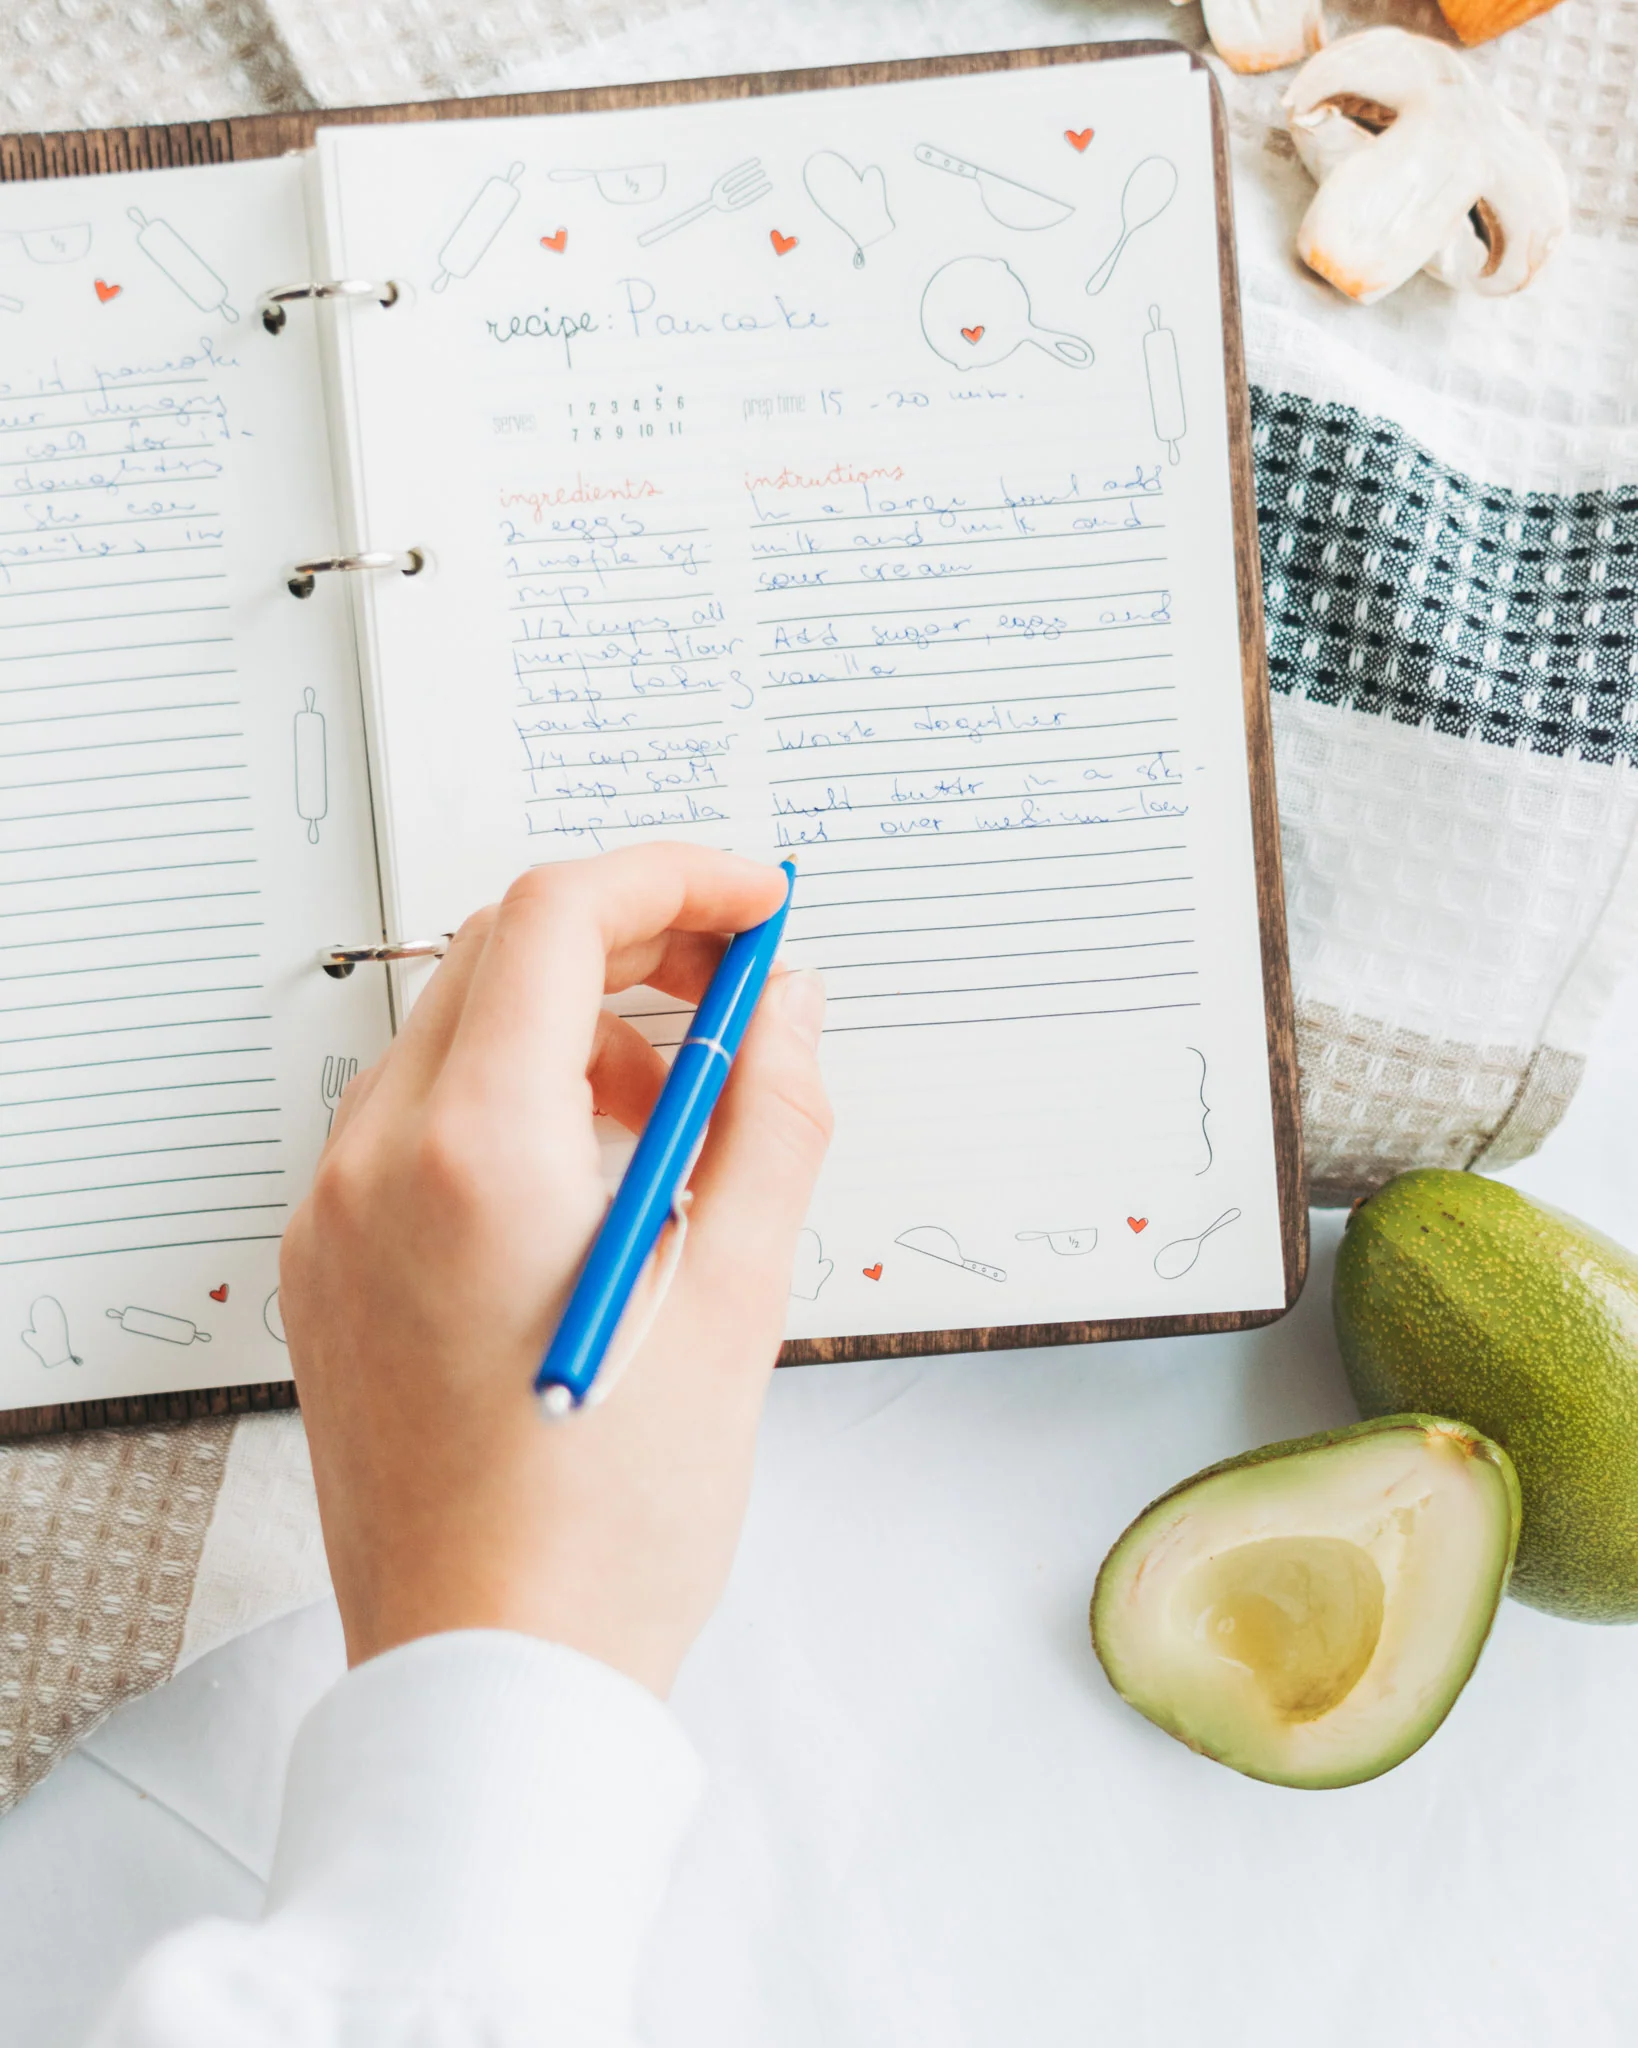 1/2
o it pancake
ur hungry
call for it-
daughters
She can
in
1/2
recipe: Pancake
serves 1 2 3 4 5 6 prep time 15 - 20 min.
7 8 9 10 11
ingredients
2 eggs
1 maple sy-
rup
1/2 cups all
purpose flour
2 tsp baking
powder
1/4 cup sugar
1 tsp salt
1 tsp vanilla
instructions
In a large bowl add
milk and milk and
sour cream
Add sugar, eggs and
vanilla
Wisk together
Melt butter in a sk-
llet over medium-low
1/2